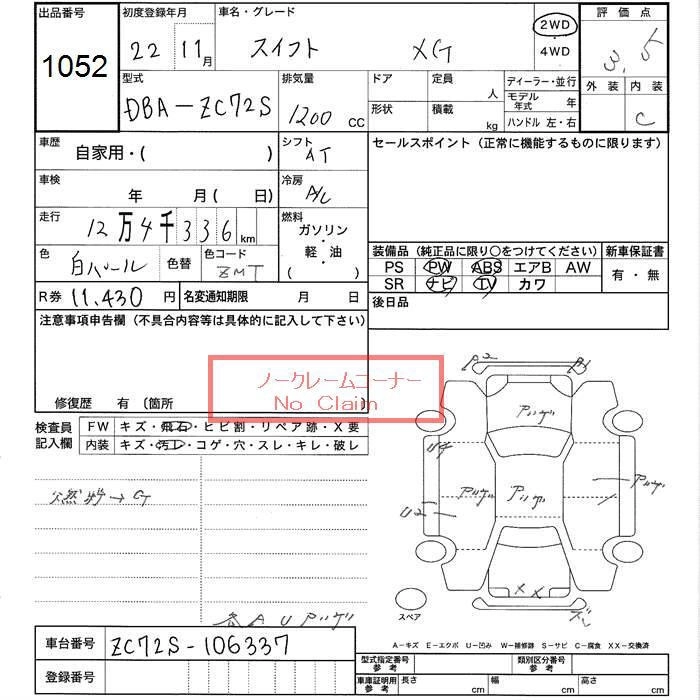 出品番号 初度登録年月 車名・グレード 2WD 評価点
1052 22 11月 スイフト XG ・4WD 3.5
型式 排気量 ドア 定員 人 ディーラー・並行 外装 内装
DBA-ZC72S 1200 CC 形状 積載 kg モデル年式 年 C
ハンドル 左・右
車歴 自家用・( ) シフト AT セールスポイント(正常に機能するものに限ります)
車検 年 月( 日) 冷房 A/C
走行 12万4千336km 燃料 ガソリン・軽・油( )
色 白パール 色替 色コード ZMT
装備品(純正品に限り○をつけてください) 新車保証書
PS PW ABS エアB AW 有・無
SR ナビ TV カワ
R券 11,430円 名変通知期限 月 日 後日品
注意事項申告欄(不具合内容等は具体的に記入して下さい)
ノークレームコーナー
No Claim
修復歴 有(箇所 )
検査員記入欄 FW キズ・飛石・ヒビ割・リペア跡・X要
内装 キズ・汚レ・コゲ・穴・スレ・キレ・破レ
燃料→G
各AUアリゲ
P2 P1
アリゲ
U4
アリゲ アリゲ アリゲ
U2
XX
ズレ
スペア
A-キズ E-エクボ U-凹み W-補修跡 S-サビ C-腐食 XX-交換済
車台番号 ZC72S-106337
登録番号
型式指定番号参考 類別区分番号参考
車庫証明用参考 長さ cm 幅 cm 高さ cm